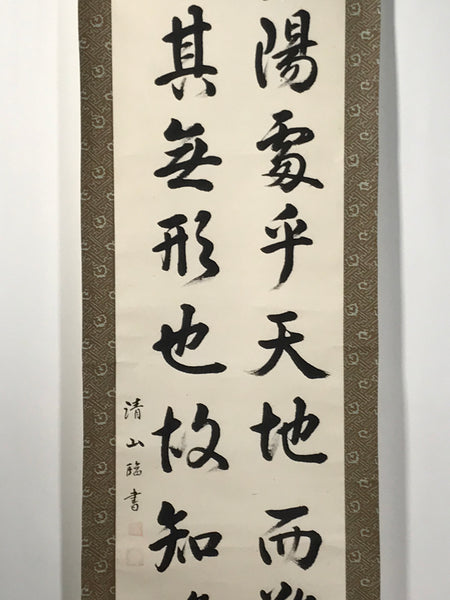 陽處乎天地而難
其無形也故知
清山臨書